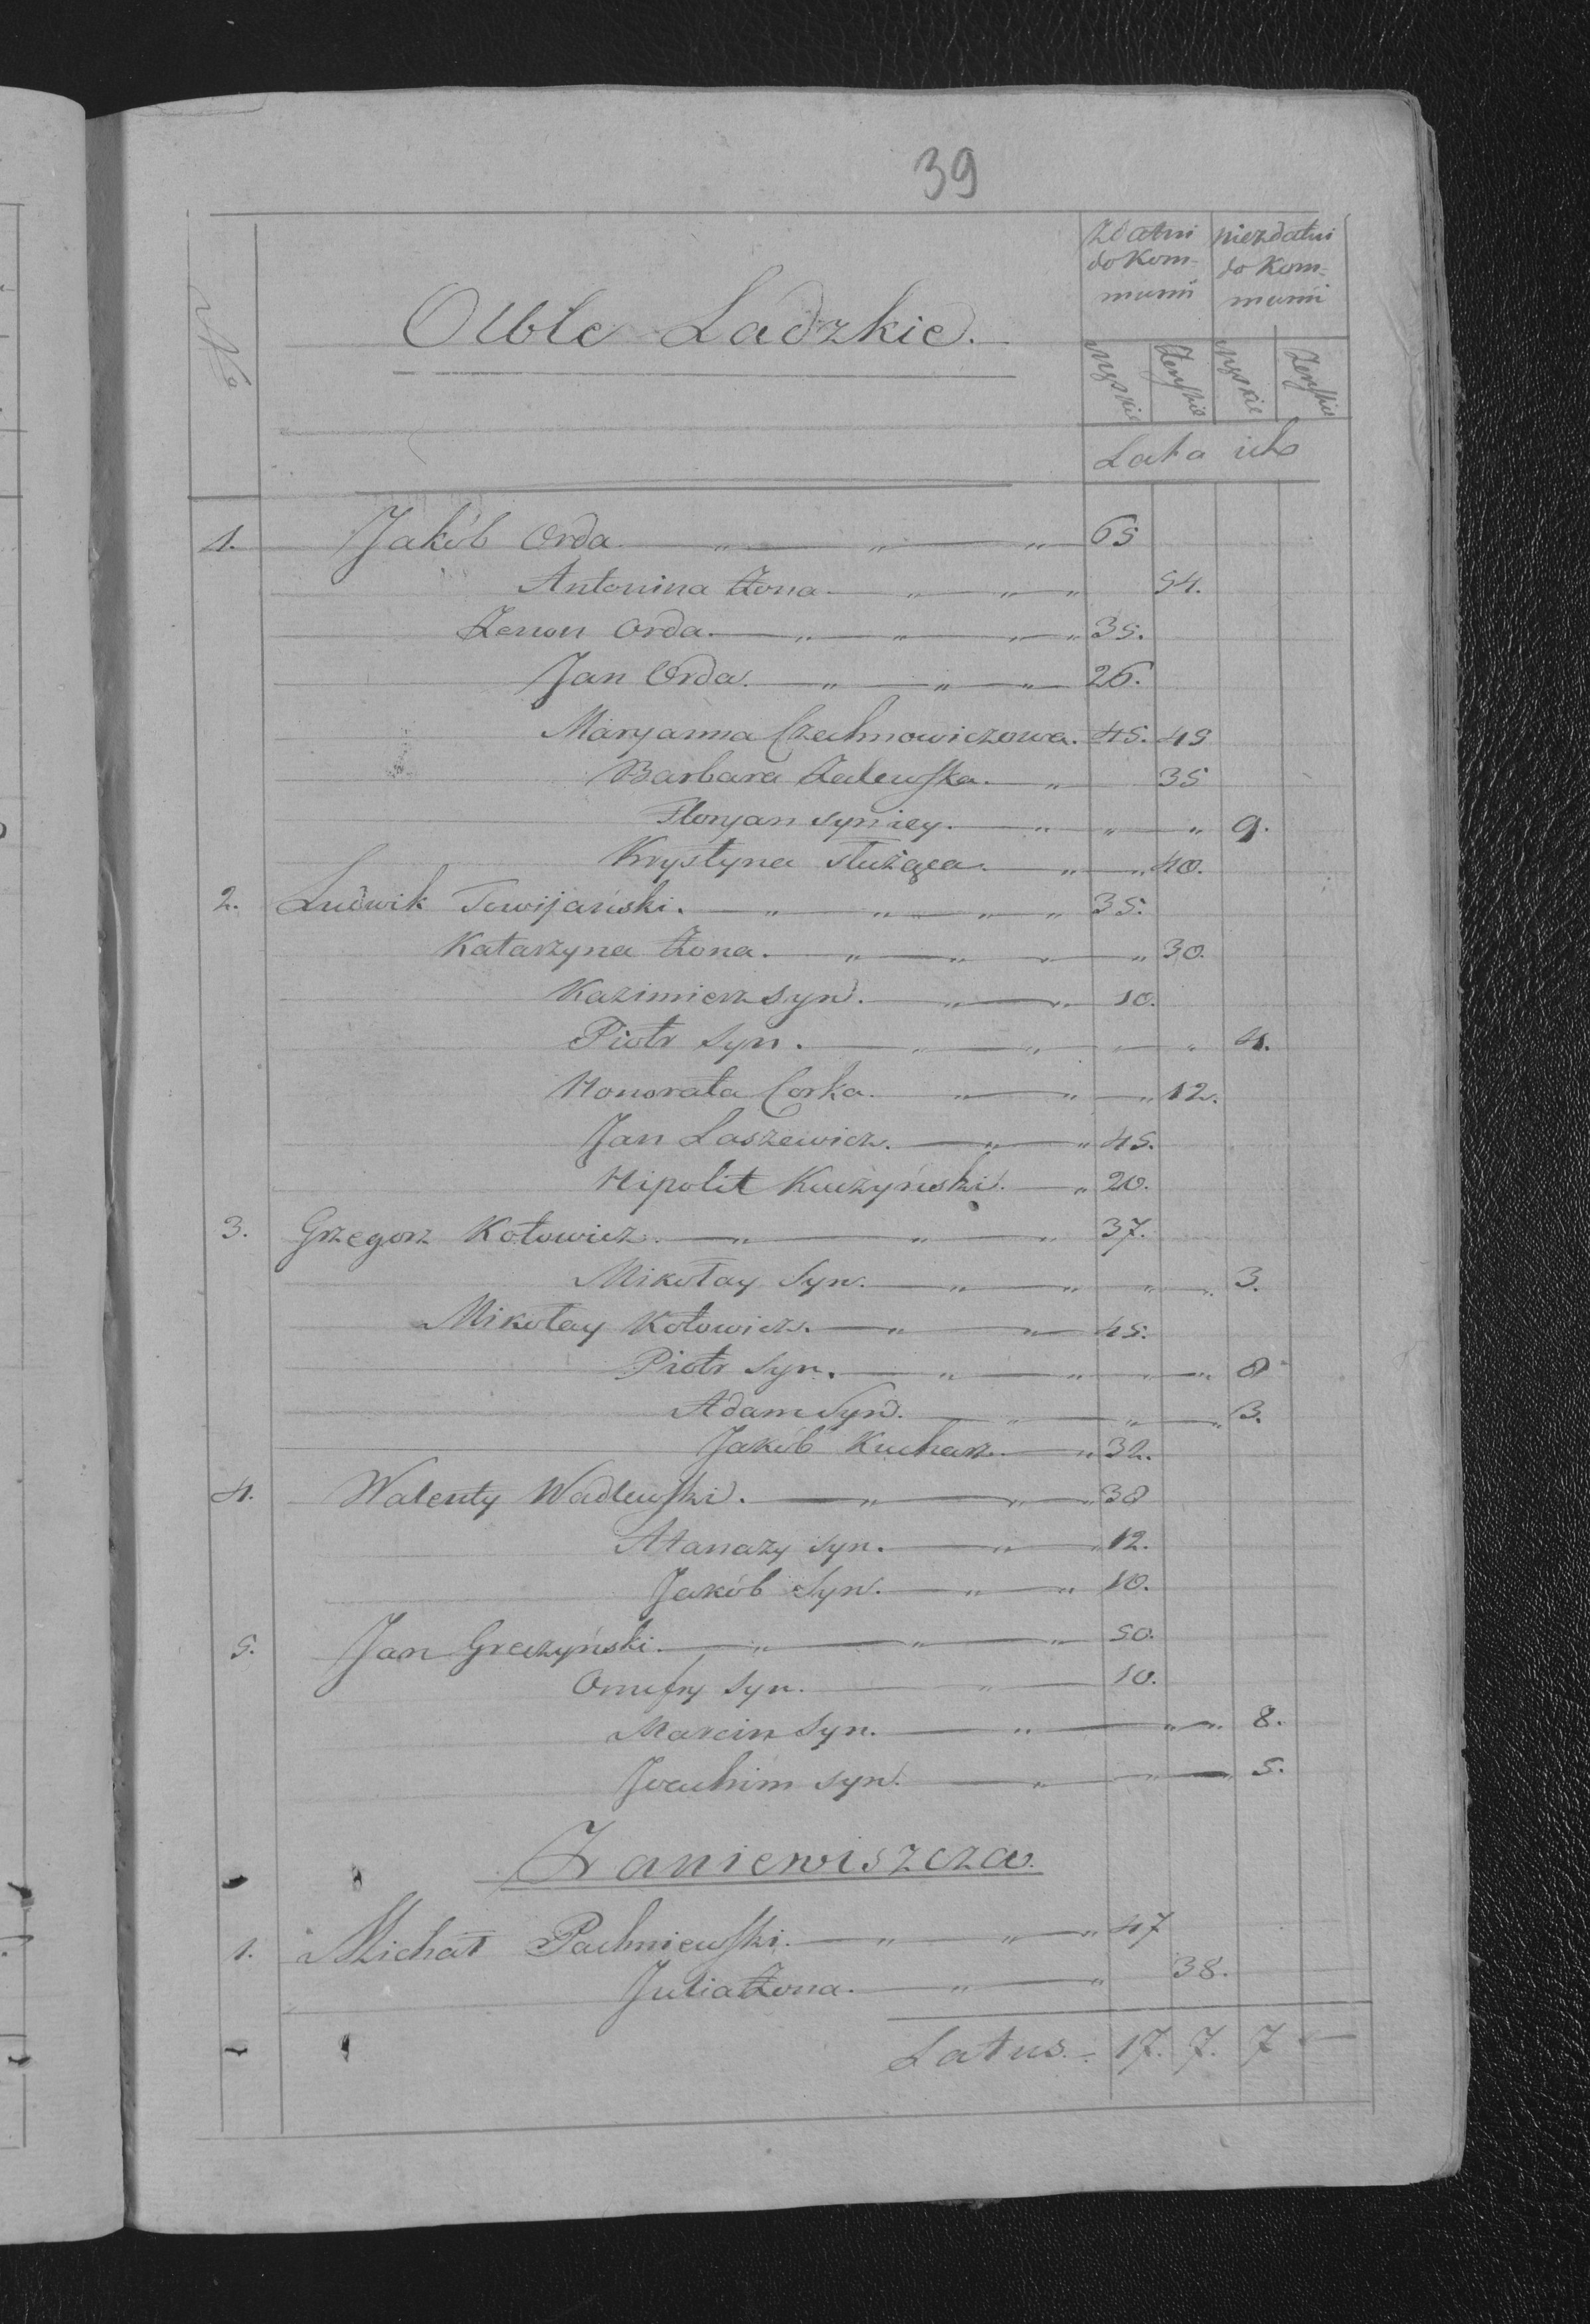 39
No
Olble Ladzkie.
Zdatni do Kom- munii
niezdatni do Kom- munii
Męskie Żeńskie Męskie Żeńskie
Lata ich
1. Jakób Orda 65
Antonina Żona 54.
Zenon Orda 35.
Jan Orda 26.
Maryanna Czechnowiczowa. 45. 45
Barbara Zalewska 35
Floryan syn iey. 9.
Krystyna służąca 40.
2. Ludwik Towijański. 35.
Katarzyna Żona. 30.
Kazimierz syn. 10.
Piotr syn. 4.
Honorata Corka. 12.
Jan Laszewicz. 45.
Hipolit Kuczyński. 20.
3. Grzegorz Kotowicz 37.
Mikołay Syn. 3.
Mikołay Kotowicz. 45.
Piotr Syn. 8
Adam Syn. 3.
Jakób Kucharz 32.
4. Walenty Wadlewski. 38
Atanazy syn. 12.
Jakób Syn. 10.
5. Jan Greczyński. 50.
Onufry syn. 10.
Marcin Syn. 8.
Joachim syn. 5.
Zaniewiszcza.
1. Michał Pachniewski. 47
Julia Żona. 38.
Latus. 17. 7. 7 —